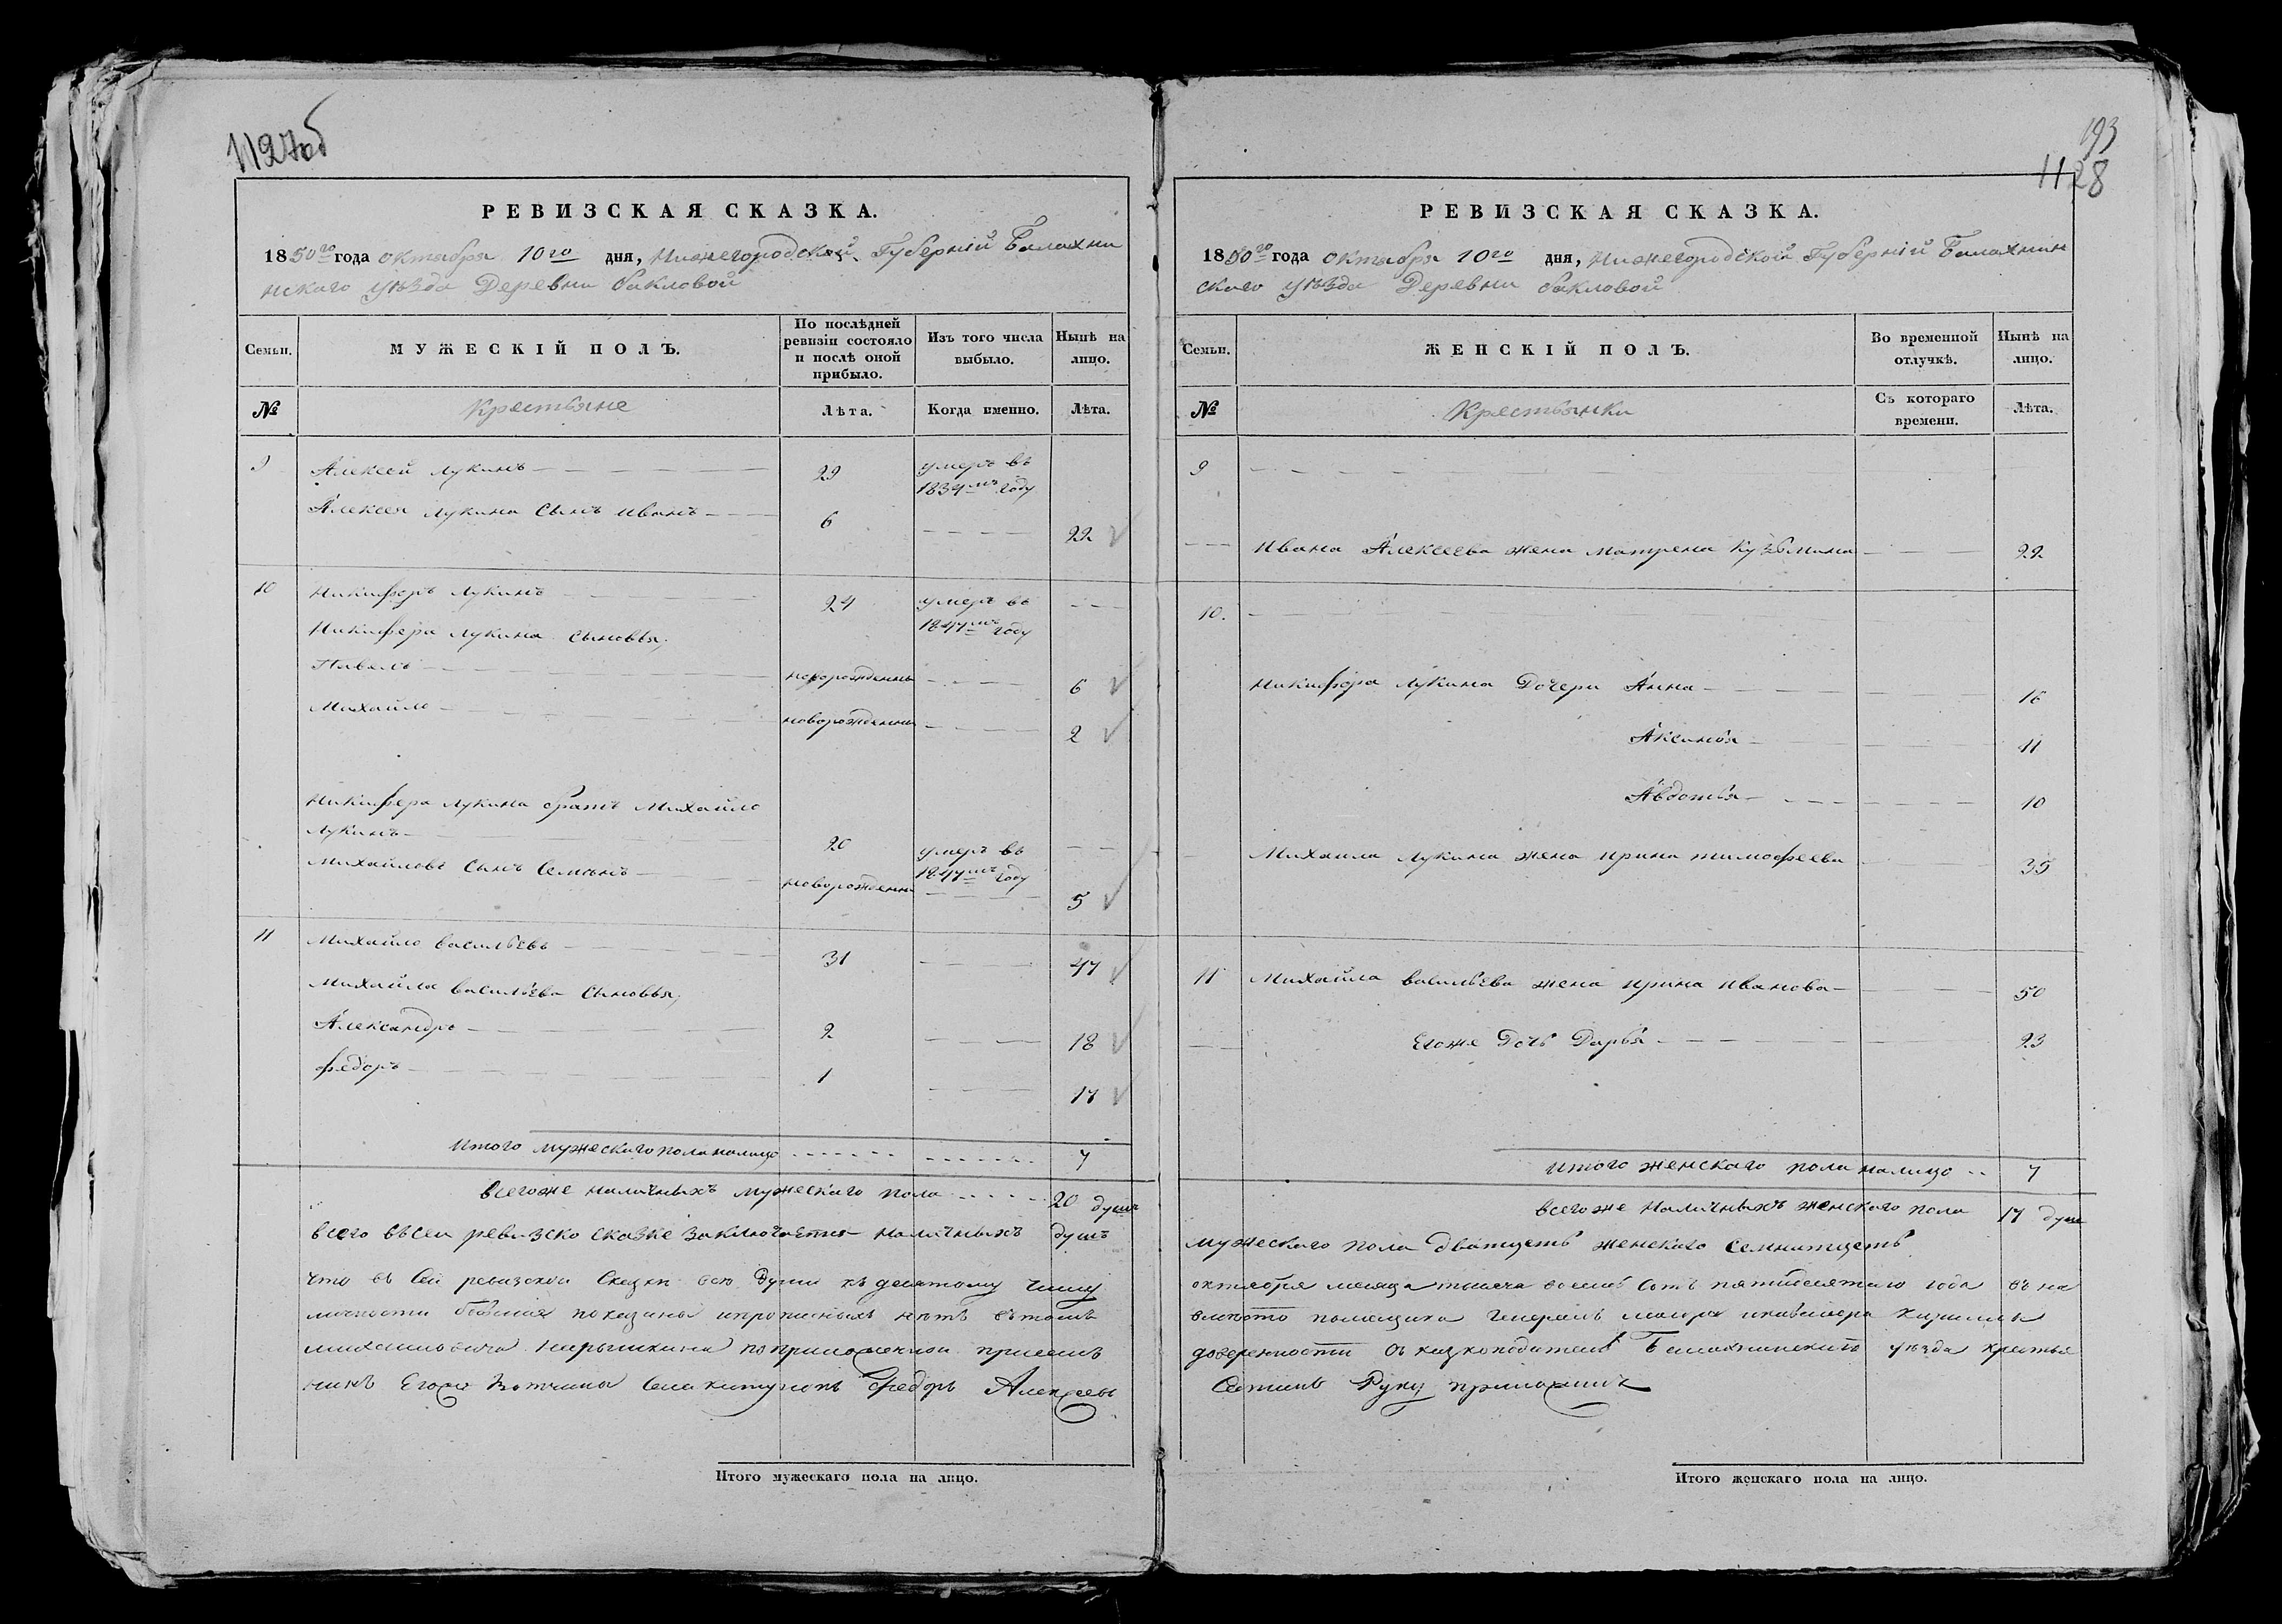 1127об
РЕВИЗСКАЯ СКАЗКА.
1850го года октября 10го дня, Нижегородской Губерніи Балахни
нскаго уѣзда Деревни баkловой
Семьи. МУЖЕСКІЙ ПОЛЪ. По послѣдней ревизіи состояло и послѣ оной прибыло. Изъ того числа выбыло. Нынѣ на лицо.
№ Крестьяне Лѣта. Когда именно. Лѣта.
9 Алексей Лукинъ 29 умеръ въ
1834мъ году
Алексея Лукина Сынъ Иванъ 6 22
10 Никифоръ Лукинъ 24 умеръ въ
1847мъ году
Никифора Лукина сыновья,
Павелъ новорожденны 6
Михайло новорожденны 2
Никифора Лукина братъ Михайло
Лукинъ 20 умеръ въ
1847мъ году
Михайловъ Сынъ Семѣнъ новорожденны 5
11 Михайло васильевъ 31 47
Михайла васильева Сыновья,
Александръ 2 18
федоръ 1 17
Итого мужескаго пола налицо 7
всегоже наличныхъ мужескаго пола 20 душъ
всего въсеи ревизско сказке заключается наличныхъ душъ
что въ Сей ревизской Сказки всѣ Души къ десятому числу
михаиловича нарышкина по приложенной
никъ Егоже Вотчины Федоръ Алексеевъ
Итого мужескаго пола на лицо.
193
1128
РЕВИЗСКАЯ СКАЗКА.
1850го года октября 10го дня, Нижегородской Губерніи Балахнин
скаго уѣзда Деревни бакловой
Семьи. ЖЕНСКІЙ ПОЛЪ. Во временной отлучкѣ. Нынѣ на лицо.
№ Крестьянки Съ котораго времени. Лѣта.
9
Ивана Алексеева жена матрена Кузьмина 22
10.
Никифора Лукина Дочери Анна 16
Аксинья 11
Авдотья 10
Михаила Лукина жена ирина тимофеева 35
11 Михайла васильева жена ирина иванова 50
Егоже Дочь Дарья 23
итого женскаго пола налицо 7
всегоже наличныхъ женскаго пола 17 душъ
мужескаго пола дватцеть женскаго семнатцеть
октября месяца тысяча восемь сотъ пятидесятаго года въ на
вместо помещика Генералъ маиора и кавалера
доверенности Балахнинскаго уезда крестья
Руку приложилъ
Итого женскаго пола на лицо.